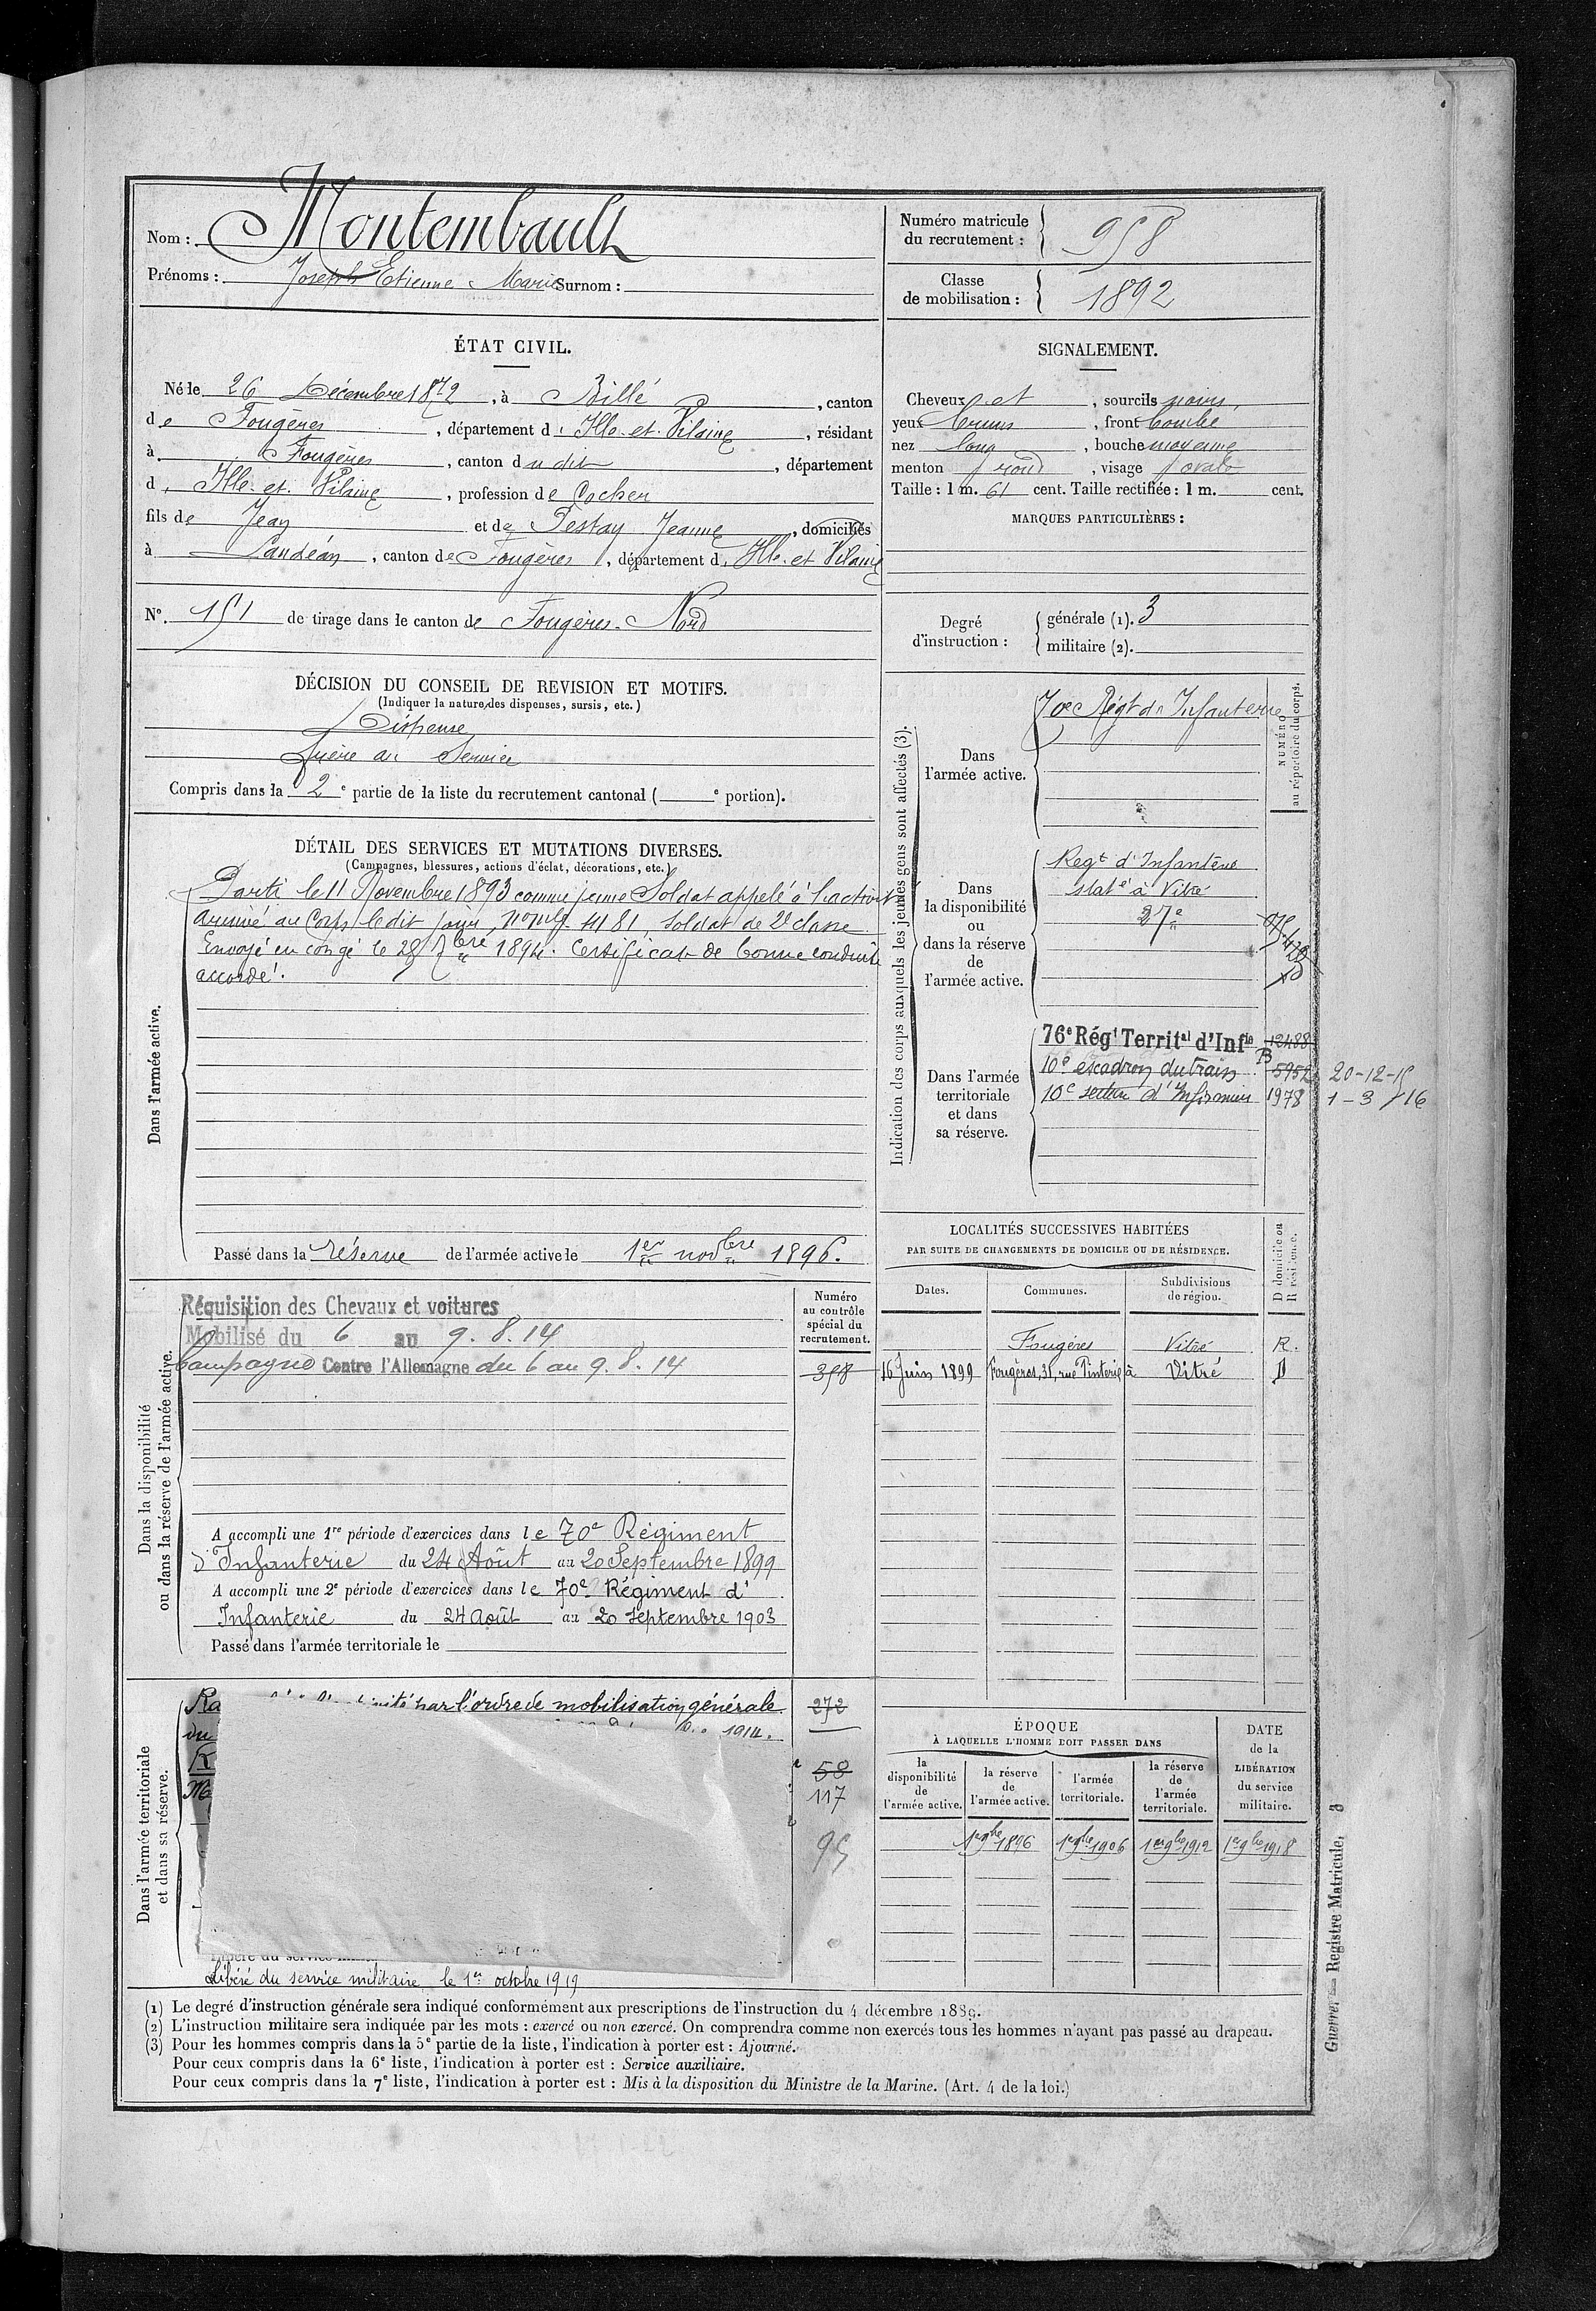 Nom : Montembault
Prénoms : Joseph Etienne Marie Surnom :
Numéro matricule du recrutement : 958
Classe de mobilisation : 1892
ÉTAT CIVIL.
Né le 26 Décembre 1872, à Billé, canton
de Fougères, département d'Ille-et-Vilaine, résidant
à Fougères, canton dudit, département
d'Ille-et-Vilaine, profession de Cocher
fils de Jean et de Testay Jeanne, domiciliés
à Landéan, canton de Fougères, département d'Ille-et-Vilaine
N° 151 de tirage dans le canton de Fougères-Nord
SIGNALEMENT.
Cheveux et, sourcils noirs,
yeux bruns, front bombé
nez long, bouche moyenne
menton rond, visage ovale
Taille : 1 m. 61 cent. Taille rectifiée : 1 m. cent.
MARQUES PARTICULIÈRES :
Degré d'instruction :
générale (1). 3
militaire (2).
DÉCISION DU CONSEIL DE REVISION ET MOTIFS.
(Indiquer la nature des dispenses, sursis, etc.)
Dispensé
Frère au Service
Compris dans la 2e partie de la liste du recrutement cantonal ( e portion).
DÉTAIL DES SERVICES ET MUTATIONS DIVERSES.
(Campagnes, blessures, actions d'éclat, décorations, etc.)
Dans l'armée active.
Parti le 11 Novembre 1893 comme jeune Soldat appelé à l'activité
arrivé au Corps le dit jour, 4181, Soldat de 2e classe.
Envoyé en congé le 28 7bre 1894. Certificat de bonne conduite
accordé.
Passé dans la réserve de l'armée active le 1er novbre 1896.
Indication des corps auxquels les jeunes gens sont affectés (3).
NUMÉRO au répertoire du corps.
Dans l'armée active.
70e Régt d'Infanterie
Dans la disponibilité ou dans la réserve de l'armée active.
Regt d'Infanterie
staté à Vitré
27e
Dans l'armée territoriale et dans sa réserve.
76e Régt Territal d'Infie 12488
10e escadron du train B 5952 20-12-15
10e section d'Infirmiers 1978 1-3-16
LOCALITÉS SUCCESSIVES HABITÉES
PAR SUITE DE CHANGEMENTS DE DOMICILE OU DE RÉSIDENCE.
Dates. Communes. Subdivisions de région. D domicile ou R résidence.
Fougères Vitré R.
16 Juin 1899 Fougères, 31, rue Pinterie à Vitré D
Dans la disponibilité ou dans la réserve de l'armée active.
Numéro au contrôle spécial du recrutement.
Réquisition des Chevaux et voitures
Mobilisé du 6 au 9.8.14
Campagne Contre l'Allemagne du 6 au 9.8.14
358
A accompli une 1re période d'exercices dans le 70e Régiment
d'Infanterie du 24 Août au 20 Septembre 1899
A accompli une 2e période d'exercices dans le 70e Régiment d'
Infanterie du 24 Août au 20 Septembre 1903
Passé dans l'armée territoriale le
Dans l'armée territoriale et dans sa réserve.
Ra
par l'ordre de mobilisation générale
du 1914.
R
M
272
58
117
95
Libéré du service militaire le 1er octobre 1919
ÉPOQUE
À LAQUELLE L'HOMME DOIT PASSER DANS
la disponibilité de l'armée active.
la réserve de l'armée active.
l'armée territoriale.
la réserve de l'armée territoriale.
DATE de la LIBÉRATION du service militaire.
1er 9bre 1896 1er 9bre 1906 1er 9bre 1912 1er 9bre 1918
(1) Le degré d'instruction générale sera indiqué conformément aux prescriptions de l'instruction du 4 décembre 1889.
(2) L'instruction militaire sera indiquée par les mots : exercé ou non exercé. On comprendra comme non exercés tous les hommes n'ayant pas passé au drapeau.
(3) Pour les hommes compris dans la 5e partie de la liste, l'indication à porter est : Ajourné.
Pour ceux compris dans la 6e liste, l'indication à porter est : Service auxiliaire.
Pour ceux compris dans la 7e liste, l'indication à porter est : Mis à la disposition du Ministre de la Marine. (Art. 4 de la loi.)
Guerre. — Registre Matricule. 3